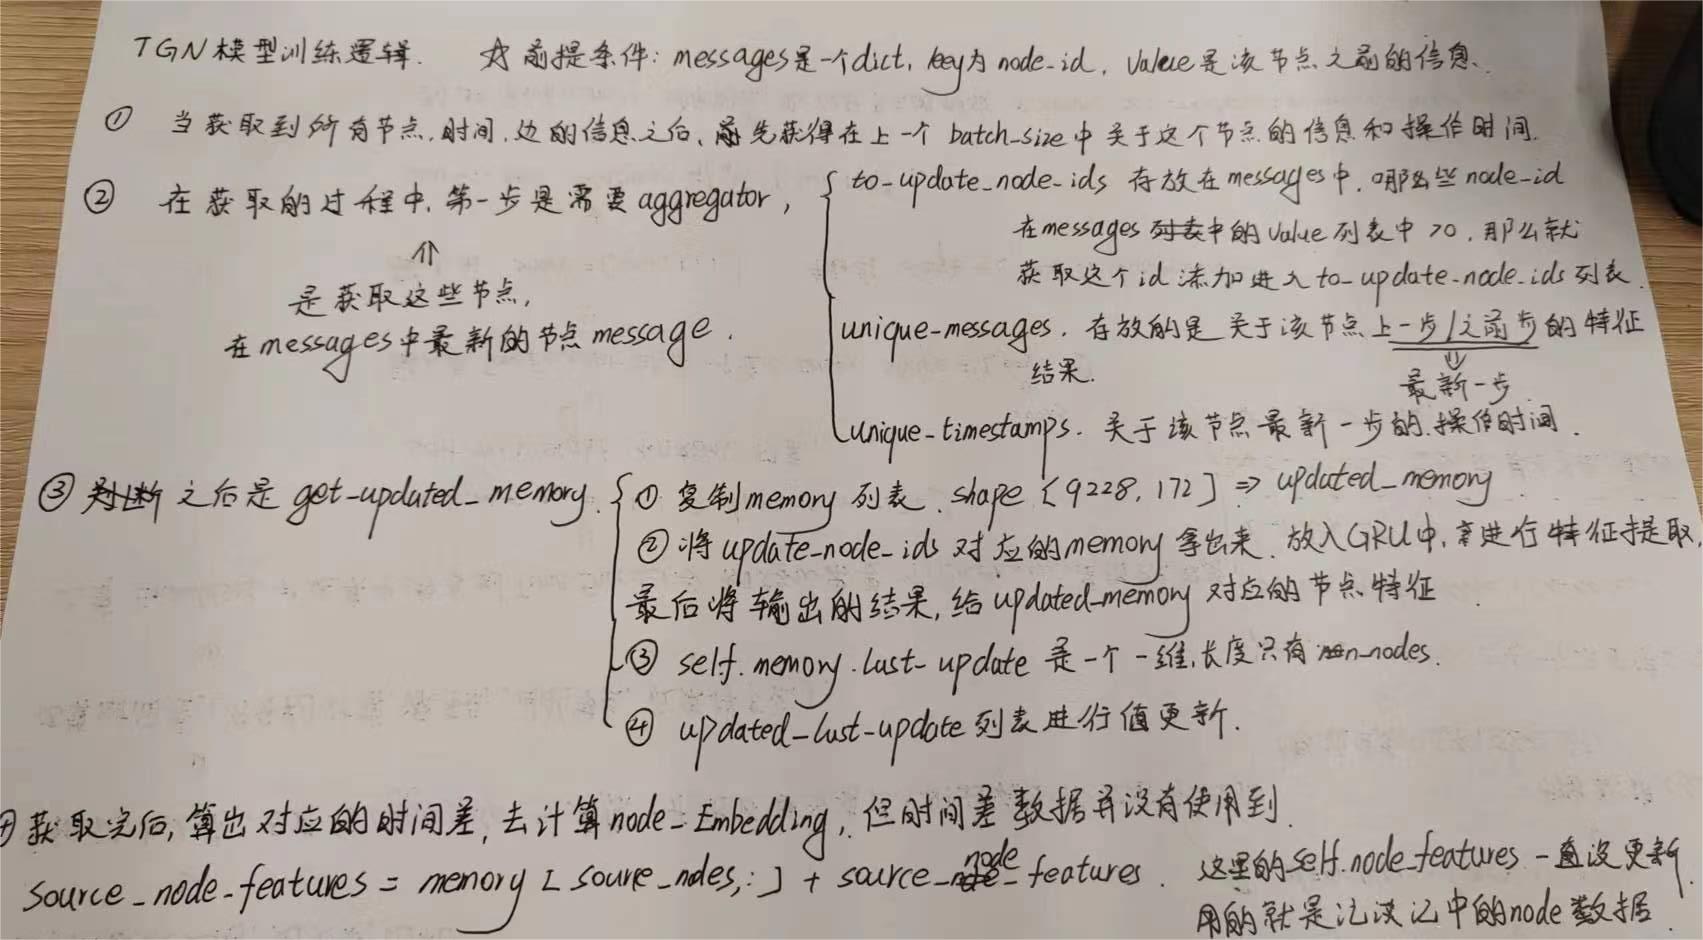 TGN模型训练逻辑. ☆ 前提条件: messages是一个dict, key为 node-id, Value是该节点之前的信息.
① 当获取到所有节点,时间,边的信息之后、先获得在上一个 batch_size中关于这个节点的信息和操作时间.
② 在获取的过程中,第一步是需要aggregator,
⇑
是获取这些节点,
在messages中最新的节点message.
to-update_node-ids 存放在messages中,哪些node-id
在messages 列表中的Value列表中 >0,那么就
获取这个id添加进入to-update-node-ids列表.
unique-messages. 存放的是关于该节点上一步/之前步的特征
结果.
⇓
最新一步
unique-timestamps. 关于该节点最新一步的操作时间.
③ 之后是 get-updated_memory.
① 复制memory列表. shape [9228,172] ⇒ updated_memory
② 将update-node-ids 对应的memory拿出来. 放入GRU中,进行特征提取,
最后将输出的结果,给updated-memory对应的节点特征.
③ self.memory.last-update 是一个一维,长度只有n-nodes.
④ updated-last-update列表进行值更新.
④获取完后,算出对应的时间差,去计算node-Embedding,但时间差数据并没有使用到.
source_node-features = memory [source_nodes,:] + source_node_features. 这里的self.node_features 一直没更新.
用的就是 中的node数据.